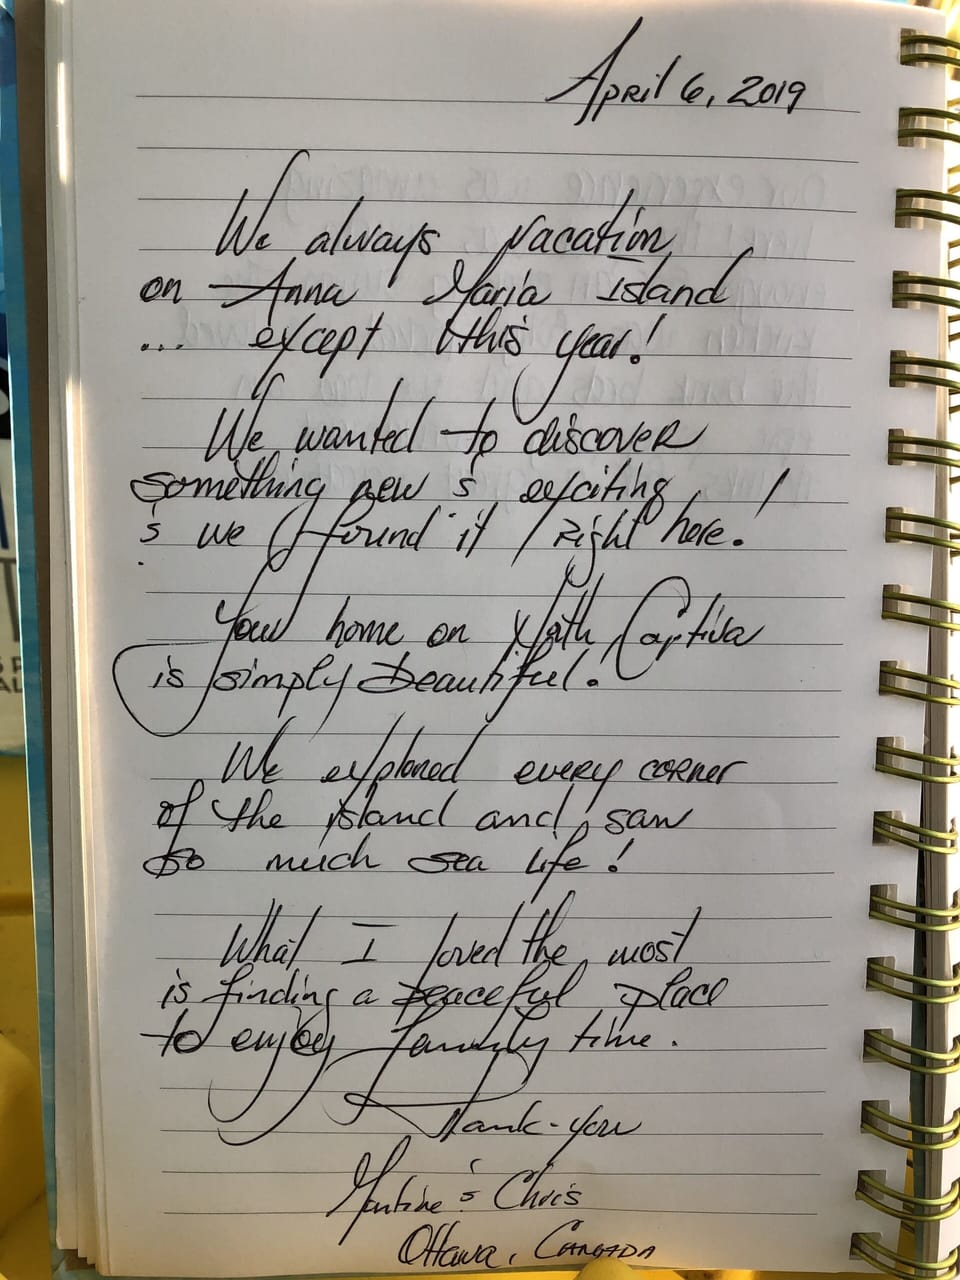 April 6, 2019
We always vacation
on Anna Maria Island
... except this year!
We wanted to discover
something new & exciting
& we found it right here!
Your home on North Captiva
is simply beautiful.
We explored every corner
of the island and saw
so much sea life!
What I loved the most
is finding a peaceful place
to enjoy family time.
Thank-you
Martine & Chris
Ottawa, CANADA